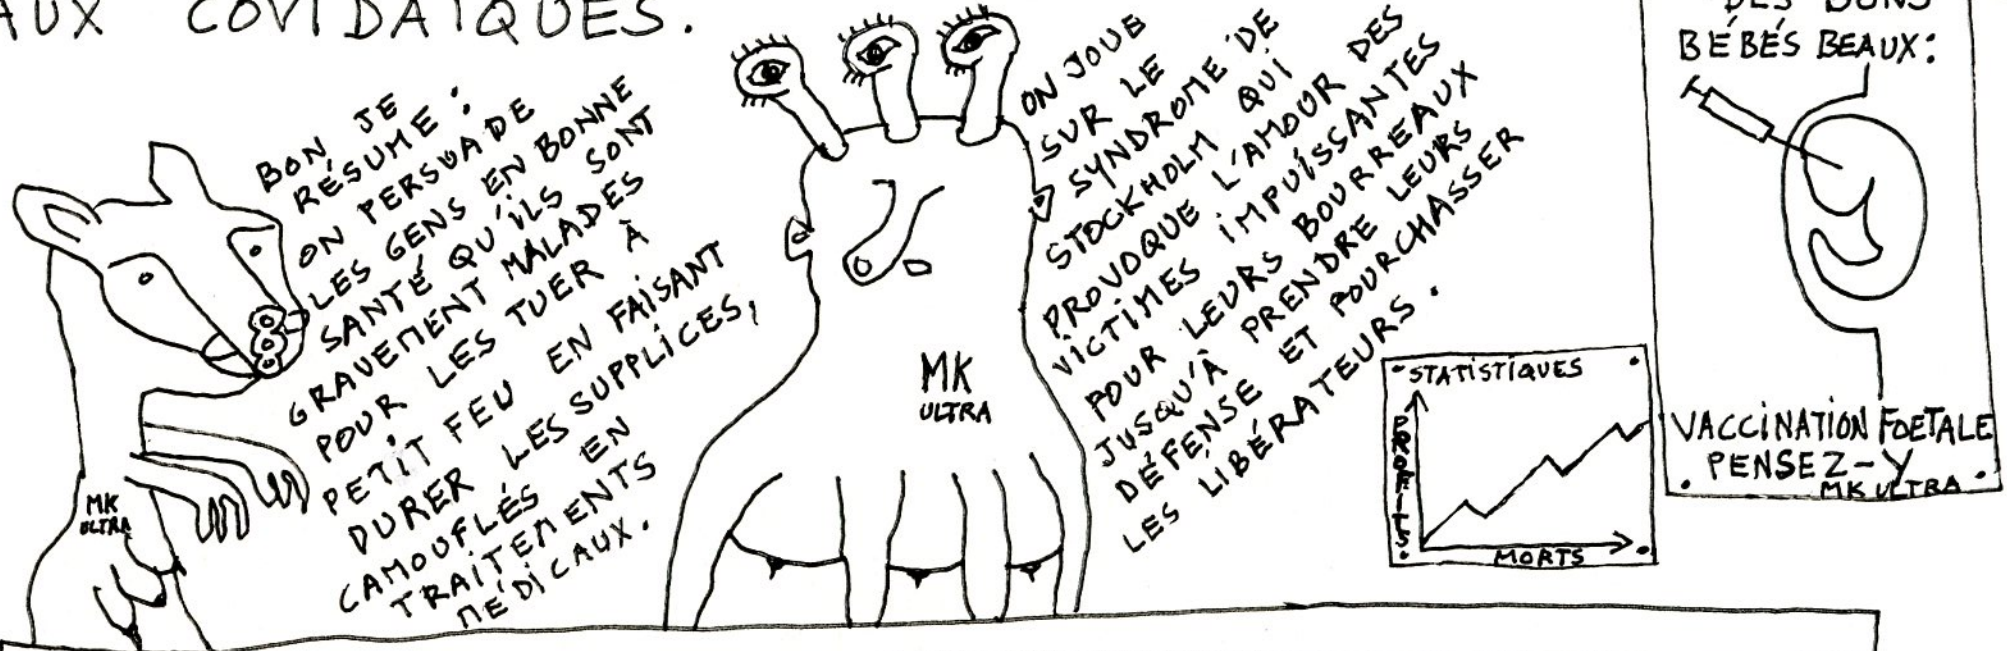 AUX COVIDAÏQUES.
BON JE
RÉSUME :
ON PERSUADE
LES GENS EN BONNE
SANTÉ QU'ILS SONT
GRAVEMENT MALADES
POUR LES TUER À
PETIT FEU EN FAISANT
DURER LES SUPPLICES,
CAMOUFLÉS EN
TRAITEMENTS
MÉDICAUX.
MK
ULTRA
ON JOUE
SUR LE
SYNDROME DE
STOCKHOLM QUI
PROVOQUE L'AMOUR DES
VICTIMES IMPUISSANTES
POUR LEURS BOURREAUX
JUSQU'À PRENDRE LEURS
DÉFENSE ET POURCHASSER
LES LIBÉRATEURS.
MK
ULTRA
STATISTIQUES
PROFITS
MORTS
DES BONS
BÉBÉS BEAUX :
VACCINATION FOETALE
PENSEZ-Y
MK ULTRA